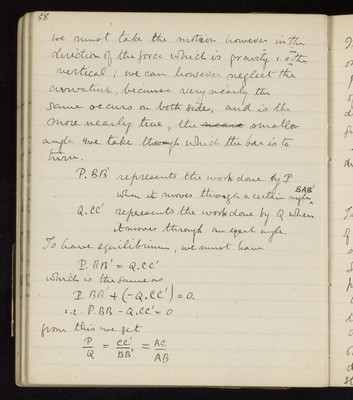 58
we must take the motion however in the
direction of the force which is gravity i.e. the
vertical; we can however neglect the
curvature, because very nearly the
same occurs on both sides, and is the
more nearly true, the smaller
angle we take through which the bar is to
turn.
P. BB' represents the work done by P
when it moves through a certain angle BAB'
Q. CC' represents the work done by Q when
it moves through an equal angle.
To have equilibrium, we must have
P. BB' = Q. CC'
which is the same as
P. BB' + (-Q. CC') = 0.
i.e. P. BB - Q. CC' = 0
from this we get
P/Q = CC'/BB' = AC/AB